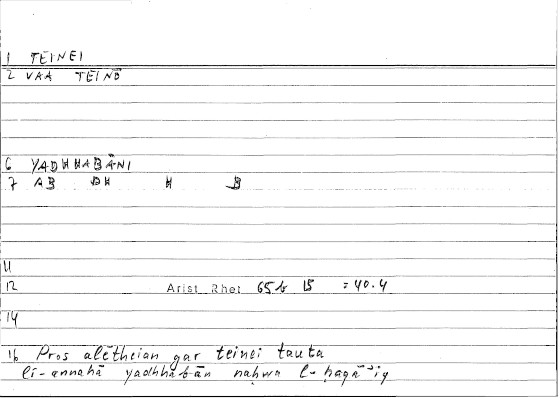 1 TEINEI
2 VAA TEINŌ
6 YADHHABĀNI
7 AB DH H B
11
12 Arist Rhet 65b 15 = 40.4
14
16 Pros alētheian gar teinei tauta
li-annahā yadhhabān naḥwa l-ḥaqāʾiq